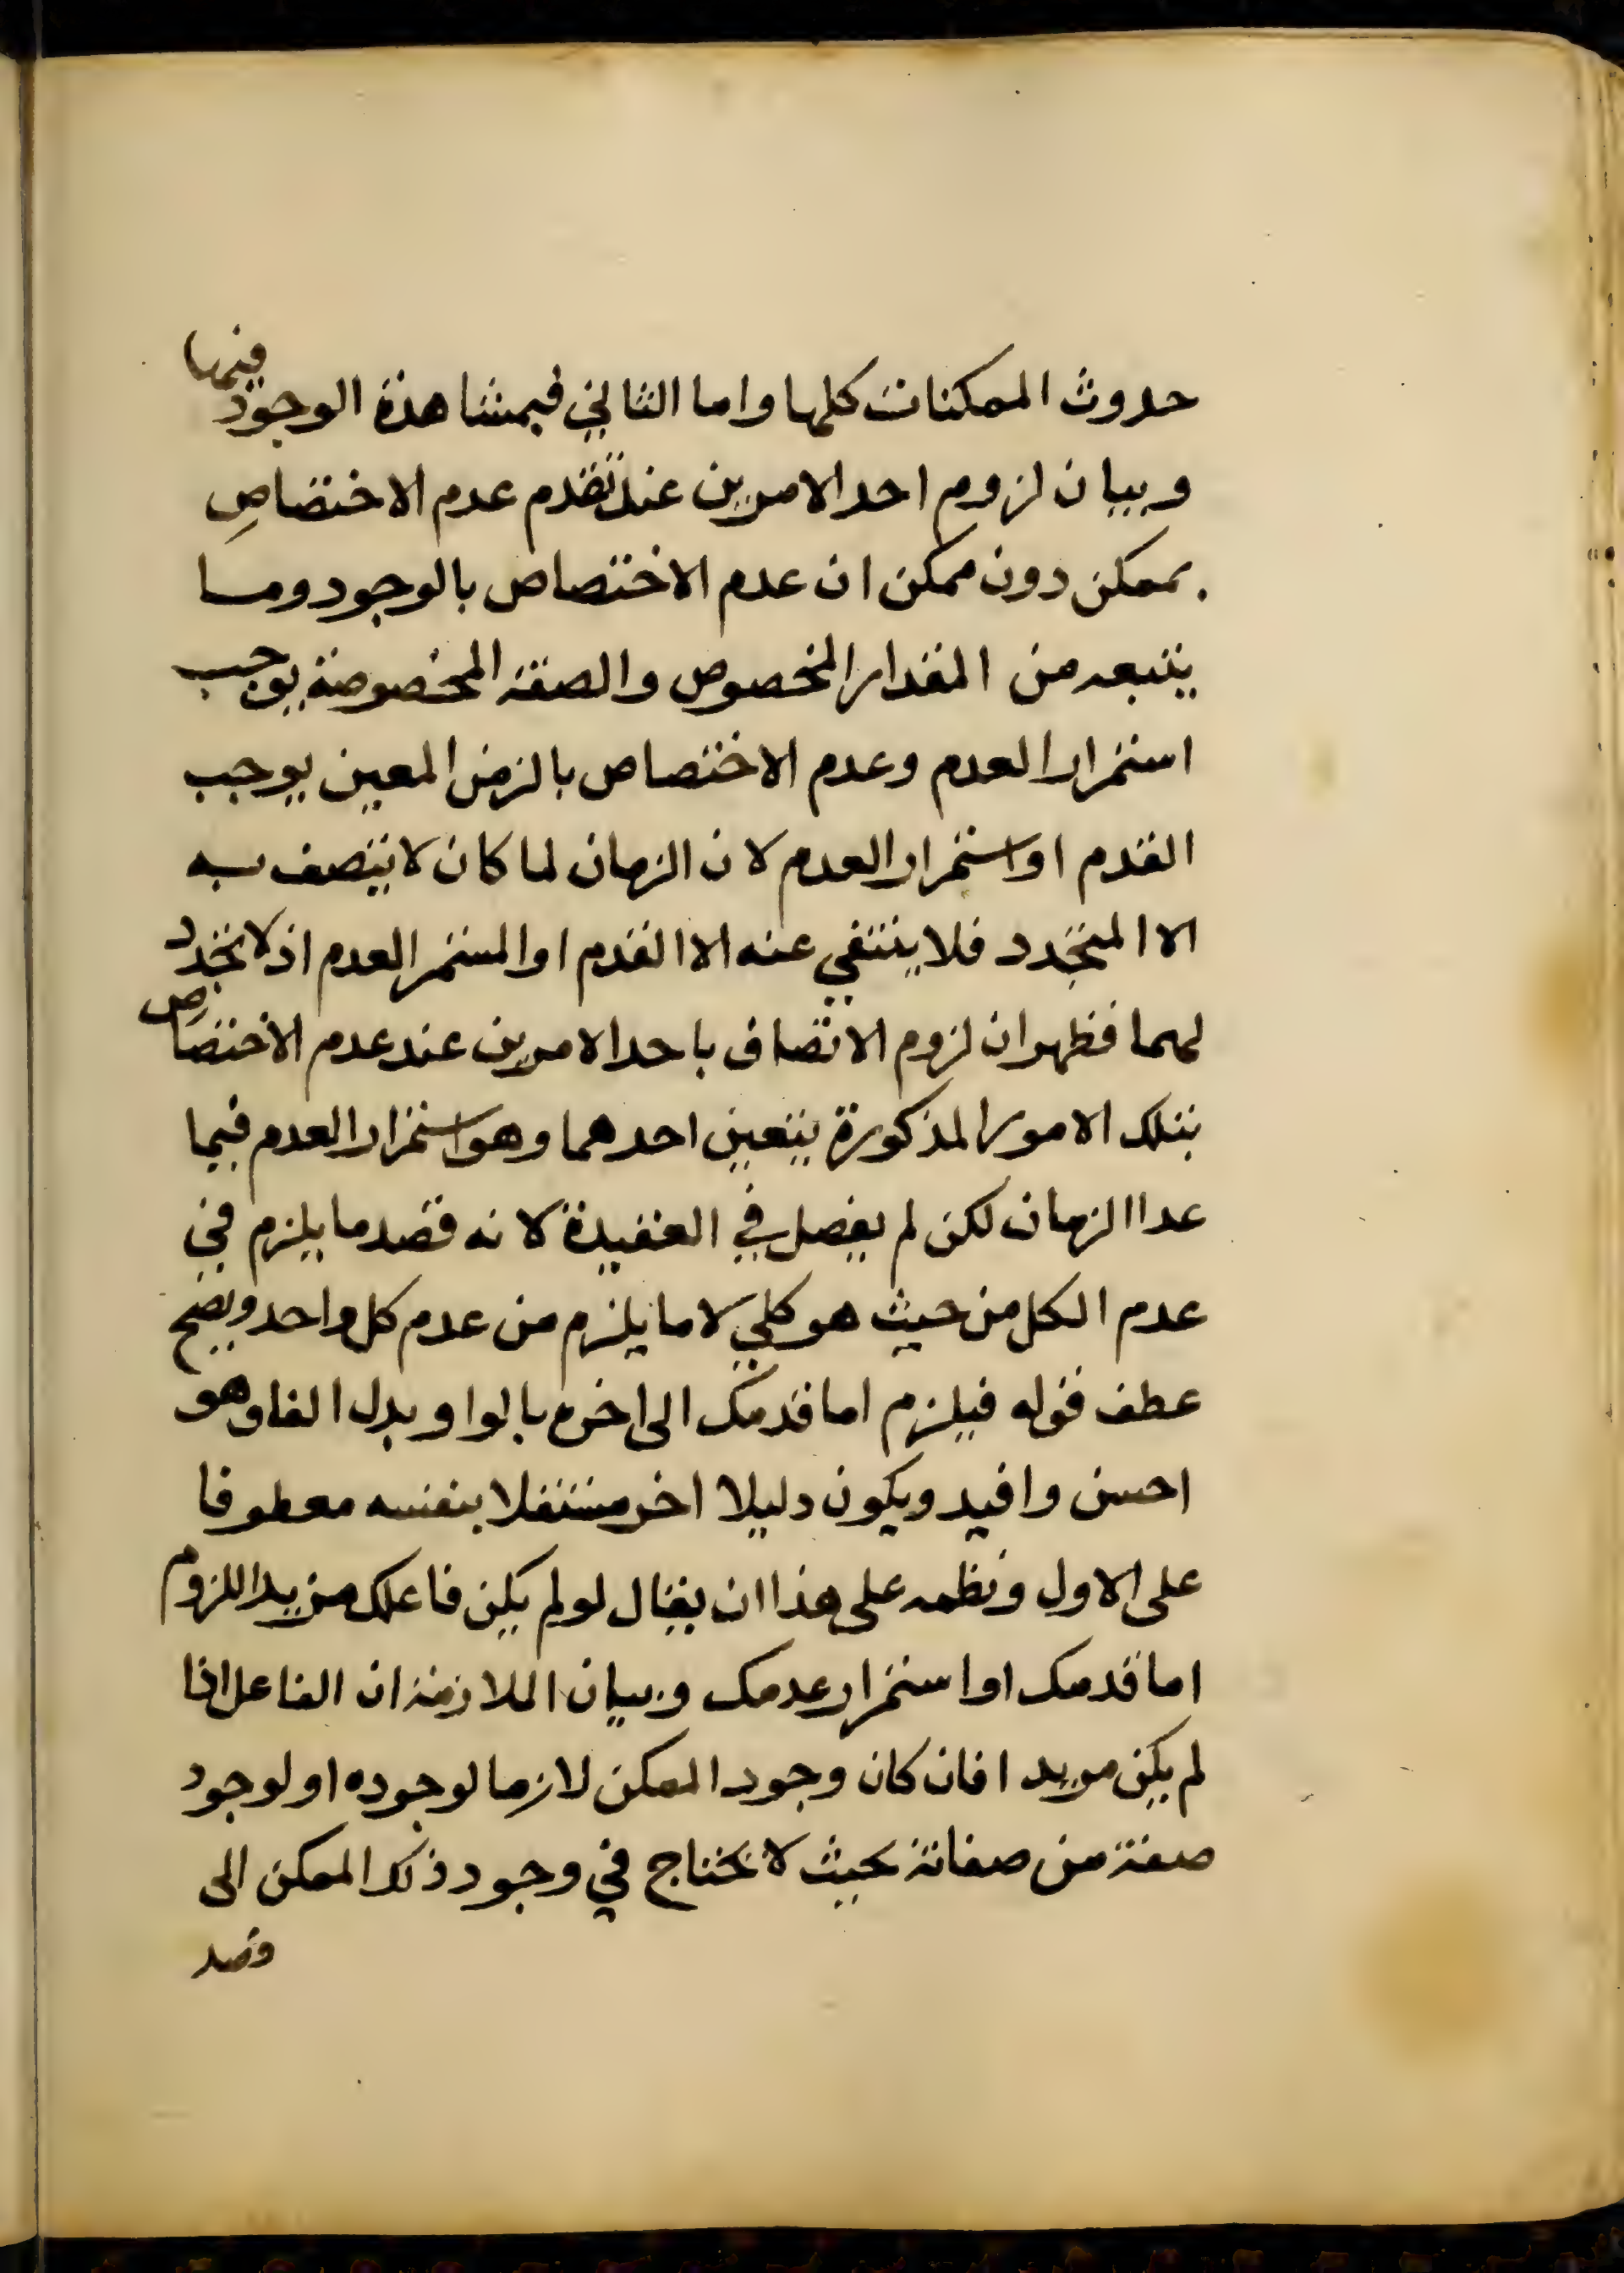 حدوث الممكنات كلها واما الثاني فبمشاهدة الوجود فيها
وبيان لزوم احد الامرين عند تقدم عدم الاختصاص
بممكن دون ممكن ان عدم الاختصاص بالوجود وما
يتبعه من المقدار المخصوص والصفة المخصوصة يوجب
استمرار العدم وعدم الاختصاص بالزمن المعين يوجب
القدم او استمرار العدم لان الزمان لما كان لا يتصف به
الا المتجدد فلا ينتفي عنه الا القدم او المستمر العدم اذ لا تجدد
لهما فظهر ان لزوم الاتصاف باحد الامرين عند عدم الاختصاص
بتلك الامور المذكورة يتعين احدهما وهو استمرار العدم فيما
عدا الزمان لكن لم يفصل في العقيدة لانه قصد ما يلزم في
عدم الكل من حيث هو كلي لا ما يلزم من عدم كل واحد ويصح
عطف قوله فيلزم اما قدمك الى اخره بالواو بدل الفا وهو
احسن وافيد ويكون دليلا اخر مستقلا بنفسه معطوفا
على الاول ونظمه على هذا ان يقال لو لم يكن فاعلك مريدا للزوم
اما قدمك او استمرار عدمك وبيان الملازمة ان الفاعل اذا
لم يكن مريدا فان كان وجود الممكن لازما لوجوده او لوجود
صفة من صفاتة بحيث لا يحتاج في وجود ذلك الممكن الى
قصد